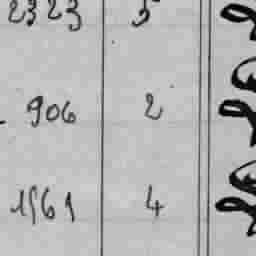 2323 5
906 2
1561 4